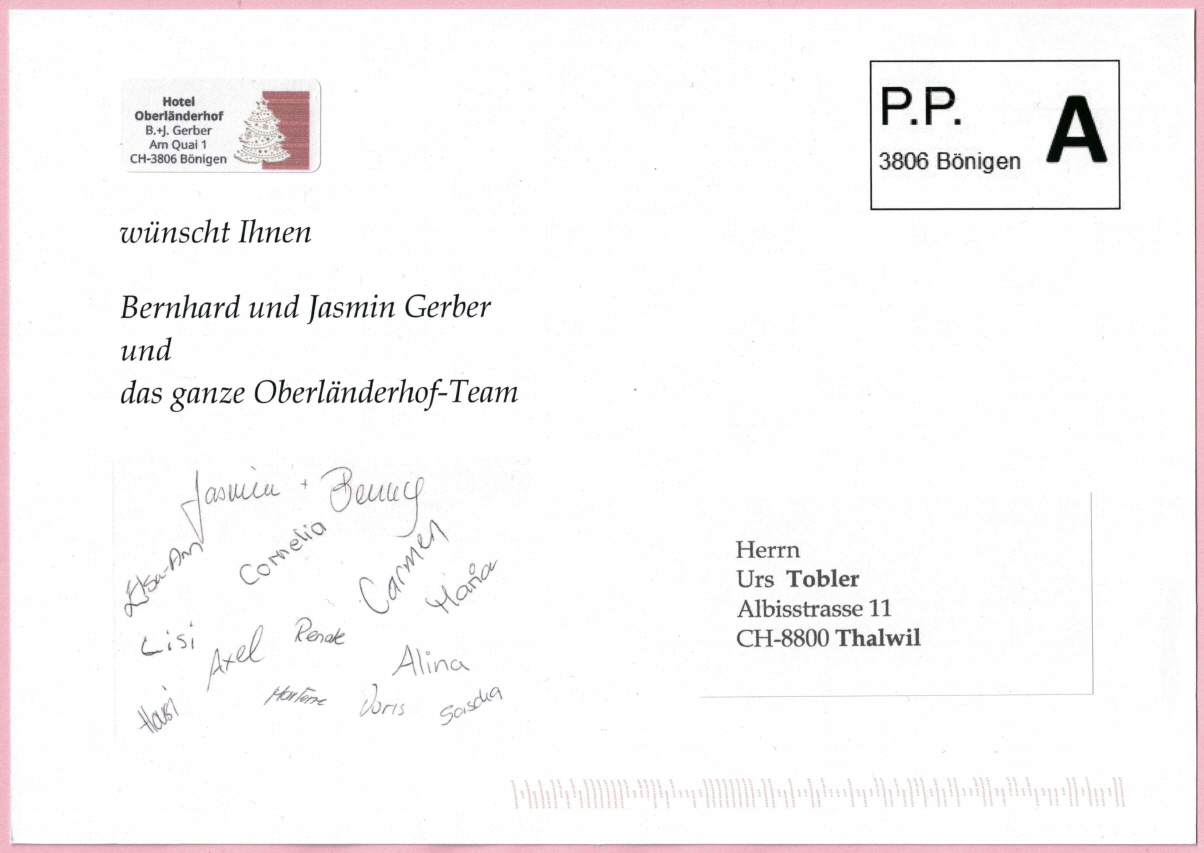 Hotel
Oberländerhof
B.+J. Gerber
Am Quai 1
CH-3806 Bönigen
P.P.
A
3806 Bönigen
wünscht Ihnen
Bernhard und Jasmin Gerber
und
das ganze Oberländerhof-Team
Jasmin + Benny
Elsa-Ann
Cornelia
Carmen
Maria
Lisi
Axel
Renate
Alina
Doris
Sascha
Herrn
Urs Tobler
Albisstrasse 11
CH-8800 Thalwil